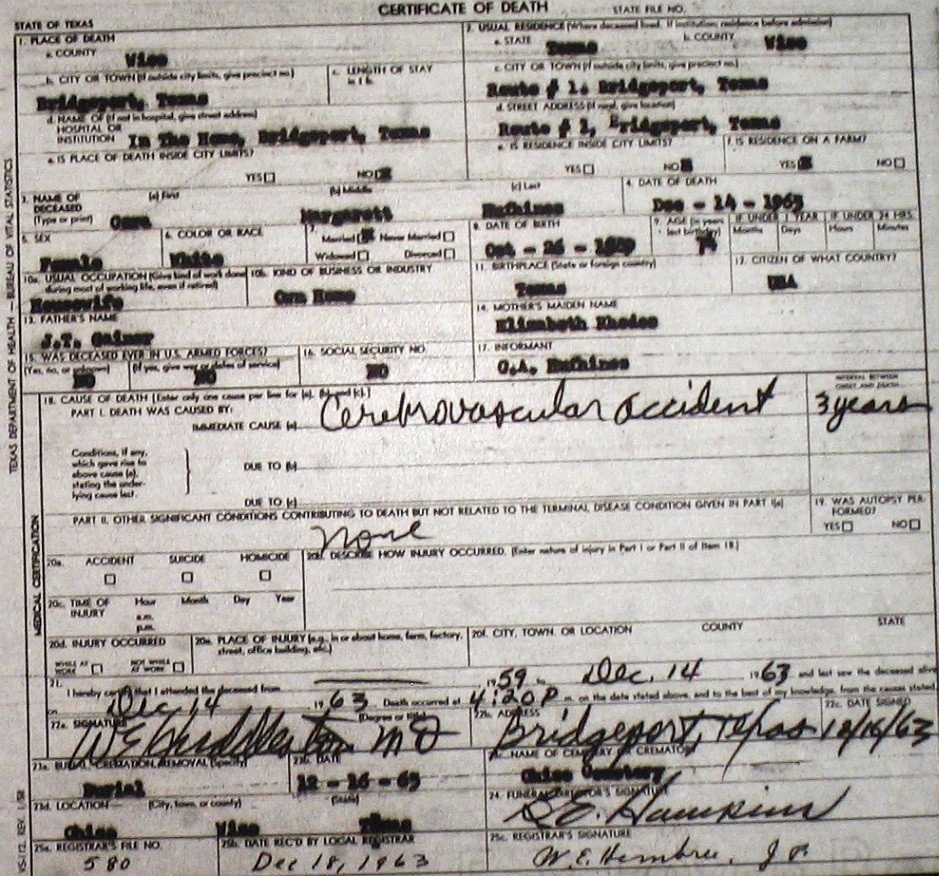 CERTIFICATE OF DEATH STATE FILE NO.
STATE OF TEXAS
1. PLACE OF DEATH
a. COUNTY Wise
2. USUAL RESIDENCE (Where deceased lived. If institution: residence before admission)
a. STATE Texas b. COUNTY Wise
b. CITY OR TOWN (If outside city limits, give precinct no.)
Bridgeport, Texas
c. LENGTH OF STAY in 1 b.
c. CITY OR TOWN (If outside city limits, give precinct no.)
Route # 1. Bridgeport, Texas
d. NAME OF (If not in hospital, give street address)
HOSPITAL OR
INSTITUTION In The Home, Bridgeport, Texas
d. STREET ADDRESS (If rural, give location)
Route # 1, Bridgeport, Texas
e. IS PLACE OF DEATH INSIDE CITY LIMITS?
YES NO
e. IS RESIDENCE INSIDE CITY LIMITS?
YES NO
f. IS RESIDENCE ON A FARM?
YES NO
3. NAME OF DECEASED (Type or print)
(a) First (b) Middle (c) Last
Margarett Hufhines
4. DATE OF DEATH
Dec - 14 - 1963
5. SEX
Female
6. COLOR OR RACE
White
7. Married Never Married
Widowed Divorced
8. DATE OF BIRTH
Oct - 26 - 1889
9. AGE (In years last birthday)
74
IF UNDER 1 YEAR IF UNDER 24 HRS.
Months Days Hours Minutes
10a. USUAL OCCUPATION (Give kind of work done during most of working life, even if retired)
Housewife
10b. KIND OF BUSINESS OR INDUSTRY
Own Home
11. BIRTHPLACE (State or foreign country)
Texas
12. CITIZEN OF WHAT COUNTRY?
USA
13. FATHER'S NAME
J.T. Gainer
14. MOTHER'S MAIDEN NAME
Elizabeth Rhodes
15. WAS DECEASED EVER IN U.S. ARMED FORCES?
(Yes, no, or unknown) (If yes, give war or dates of service)
NO NO
16. SOCIAL SECURITY NO.
NO
17. INFORMANT
Hufhines
18. CAUSE OF DEATH (Enter only one cause per line for (a), (b), and (c).)
PART I. DEATH WAS CAUSED BY:
IMMEDIATE CAUSE (a) Cerebrovascular accident
INTERVAL BETWEEN ONSET AND DEATH
3 years
Conditions, if any, which gave rise to above cause (a), stating the underlying cause last.
DUE TO (b)
DUE TO (c)
PART II. OTHER SIGNIFICANT CONDITIONS CONTRIBUTING TO DEATH BUT NOT RELATED TO THE TERMINAL DISEASE CONDITION GIVEN IN PART I(a)
none
19. WAS AUTOPSY PERFORMED?
YES NO
20a. ACCIDENT SUICIDE HOMICIDE
20b. DESCRIBE HOW INJURY OCCURRED. (Enter nature of injury in Part I or Part II of Item 18.)
20c. TIME OF INJURY Hour Month Day Year
a.m.
p.m.
20d. INJURY OCCURRED
WHILE AT WORK NOT WHILE AT WORK
20e. PLACE OF INJURY (e.g., in or about home, farm, factory, street, office building, etc.)
20f. CITY, TOWN, OR LOCATION COUNTY STATE
21. I hereby certify that I attended the deceased from 1959 to Dec. 14 1963 and last saw the deceased alive
on Dec 14 1963 Death occurred at 4:20 P m. on the date stated above, and to the best of my knowledge, from the causes stated.
22a. SIGNATURE (Degree or title)
W E Huddleston MD
22b. ADDRESS
Bridgeport, Texas
22c. DATE SIGNED
12/16/63
23a. BURIAL, CREMATION, REMOVAL (Specify)
Burial
23b. DATE
12 - 16 - 63
23c. NAME OF CEMETERY OR CREMATORY
Chico Cemetery
23d. LOCATION (City, town, or county) (State)
Chico Wise Texas
24. FUNERAL DIRECTOR'S SIGNATURE
Hawkins
25a. REGISTRAR'S FILE NO.
580
25b. DATE REC'D BY LOCAL REGISTRAR
Dec 18, 1963
25c. REGISTRAR'S SIGNATURE
W.E. Hembree, J.P.
TEXAS DEPARTMENT OF HEALTH — BUREAU OF VITAL STATISTICS
MEDICAL CERTIFICATION
VS-112. REV. 1/58